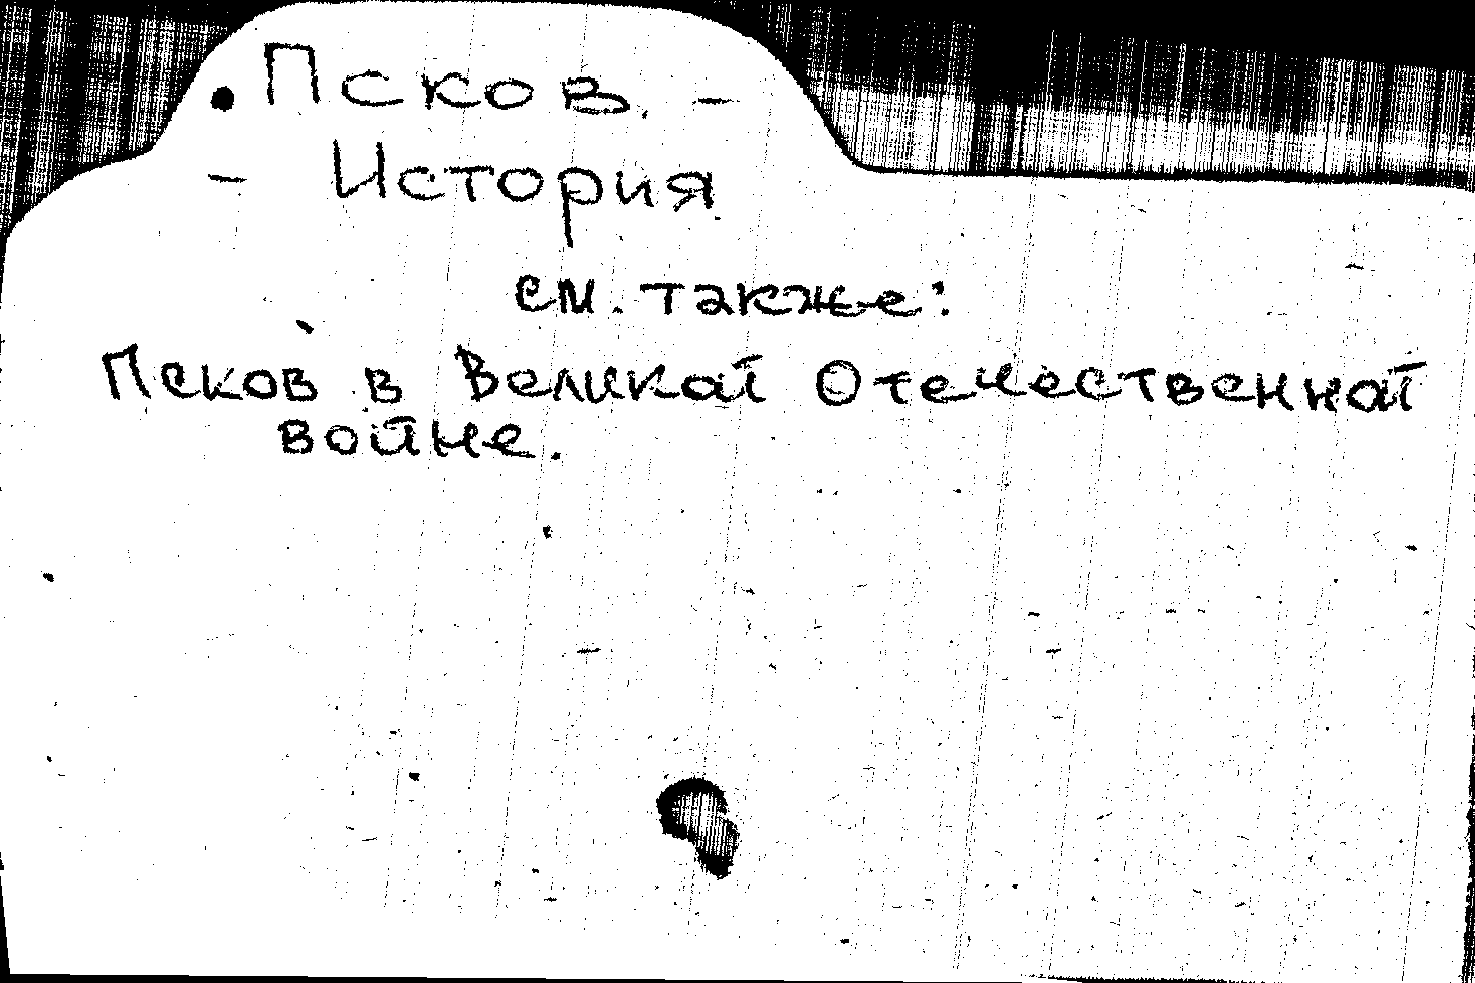 • Псков. –
– История
см. также:
Псков в Великой Отечественной
войне.